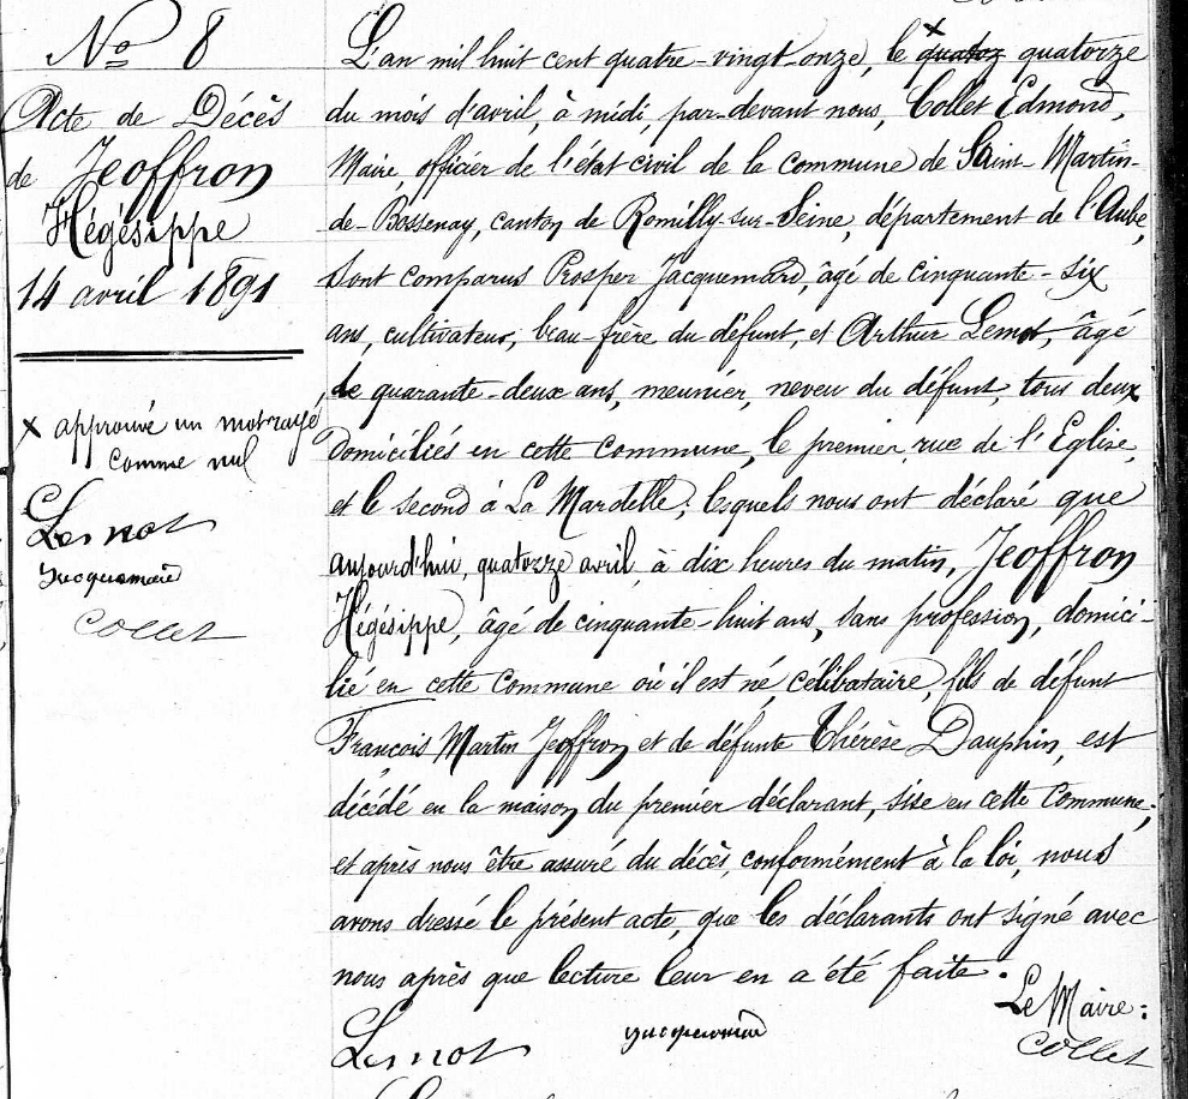 No 8
Acte de Décès
de Jeoffron
Hégésippe
14 avril 1891
x approuvé un mot rayé
comme nul
Lemot
Jacquemard
Collet
L'an mil huit cent quatre-vingt-onze, le x quatoz quatorze
du mois d'avril, à midi, par-devant nous, Collet Edmond,
Maire, officier de l'état civil de la commune de Saint-Martin-
de-Bossenay, canton de Romilly-sur-Seine, département de l'Aube,
sont comparus Prosper Jacquemard, âgé de cinquante-six
ans, cultivateur, beau-frère du défunt, et Arthur Lemot, âgé
de quarante-deux ans, meunier, neveu du défunt, tous deux
domiciliés en cette commune, le premier rue de l'Eglise,
et le second à La Mardelle; lesquels nous ont déclaré que
aujourd'hui, quatorze avril, à dix heures du matin, Jeoffron
Hégésippe, âgé de cinquante-huit ans, sans profession, domici-
lié en cette commune où il est né, célibataire, fils de défunt
François Martin Jeoffron et de défunte Thérèse Dauphin, est
décédé en la maison du premier déclarant, sise en cette commune;
et après nous être assuré du décès, conformément à la loi, nous
avons dressé le présent acte, que les déclarants ont signé avec
nous après que lecture leur en a été faite.
Le Maire:
Lemot Jacquemard Collet